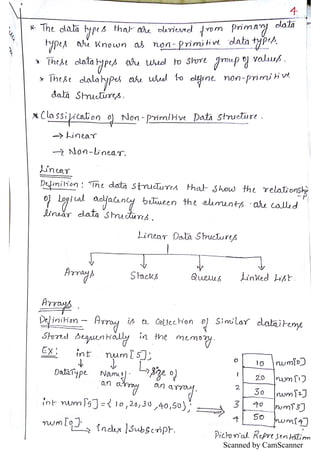 4
* The data types that are derieved from primary data
types are known as non-primitive data types.
* These datatypes are used to store group of values.
* These datatypes are used to define non-primitive
data structures.
* Classification of Non-primitive Data Structure.
→ Linear
→ Non-linear.
Linear
Definition: The data structures that show the relationship
of logical adjacency between the elements are called
linear data structures.
Linear Data Structures
Arrays Stacks Queues Linked List
Arrays
Definition - Array is a collection of similar dataitems
stored sequentially in the memory.
Ex: int num[5];
DataType Name of Size of
an array an array.
int num[5] = {10,20,30,40,50};
num[0] → Index/Subscript.
0 10 num[0]
1 20 num[1]
2 30 num[2]
3 40 num[3]
4 50 num[4]
Pictorial Representation
Scanned by CamScanner